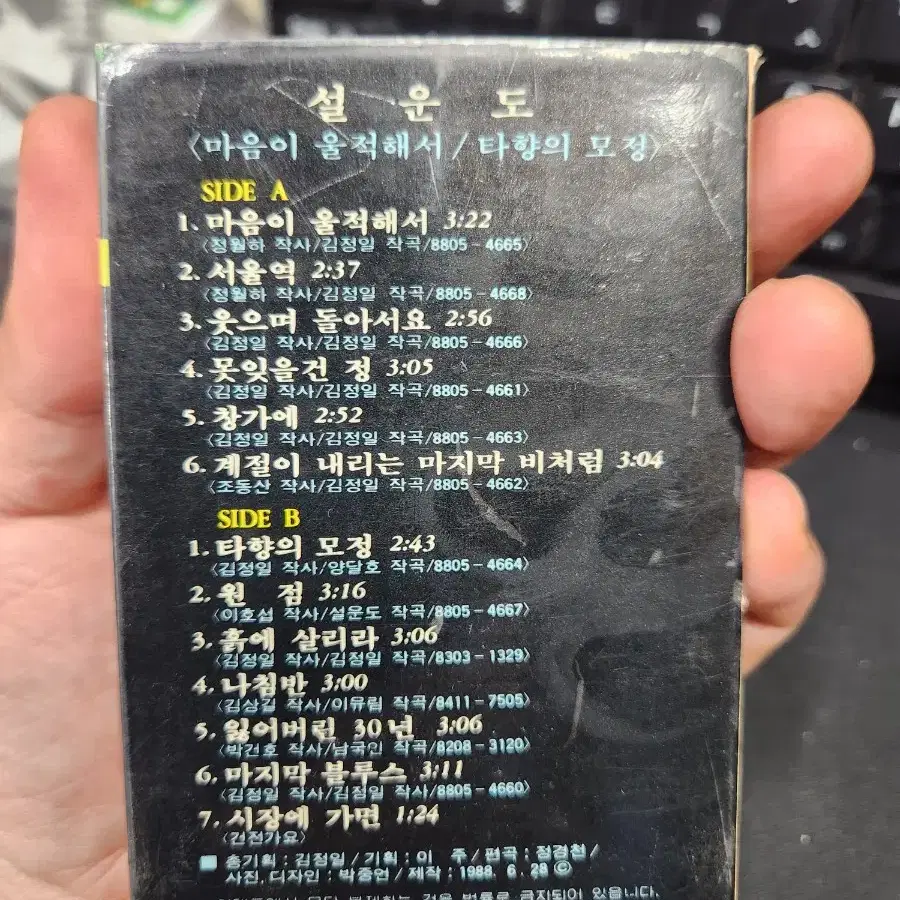 설 운 도
〈마음이 울적해서 / 타향의 모정〉
SIDE A
1. 마음이 울적해서 3:22
〈정월하 작사/김정일 작곡/8805-4665〉
2. 서울역 2:37
〈정월하 작사/김정일 작곡/8805-4668〉
3. 웃으며 돌아서요 2:56
〈김정일 작사/김정일 작곡/8805-4666〉
4. 못잊을건 정 3:05
〈김정일 작사/김정일 작곡/8805-4661〉
5. 창가에 2:52
〈김정일 작사/김정일 작곡/8805-4663〉
6. 계절이 내리는 마지막 비처럼 3:04
〈조동산 작사/김정일 작곡/8805-4662〉
SIDE B
1. 타향의 모정 2:43
〈김정일 작사/양달호 작곡/8805-4664〉
2. 원 점 3:16
〈이호섭 작사/설운도 작곡/8805-4667〉
3. 흙에 살리라 3:06
〈김정일 작사/김정일 작곡/8303-1329〉
4. 나침반 3:00
〈김상길 작사/이유림 작곡/8411-7505〉
5. 잃어버린 30년 3:06
〈박건호 작사/남국인 작곡/8208-3120〉
6. 마지막 블루스 3:11
〈김정일 작사/김정일 작곡/8805-4660〉
7. 시장에 가면 1:24
〈건전가요〉
■ 총기획 : 김정일/기획 : 이 주/편곡 : 정경천/
사진, 디자인 : 박중언/제작 : 1988. 6. 28 ©
것을 법률로 금지되어 있읍니다.